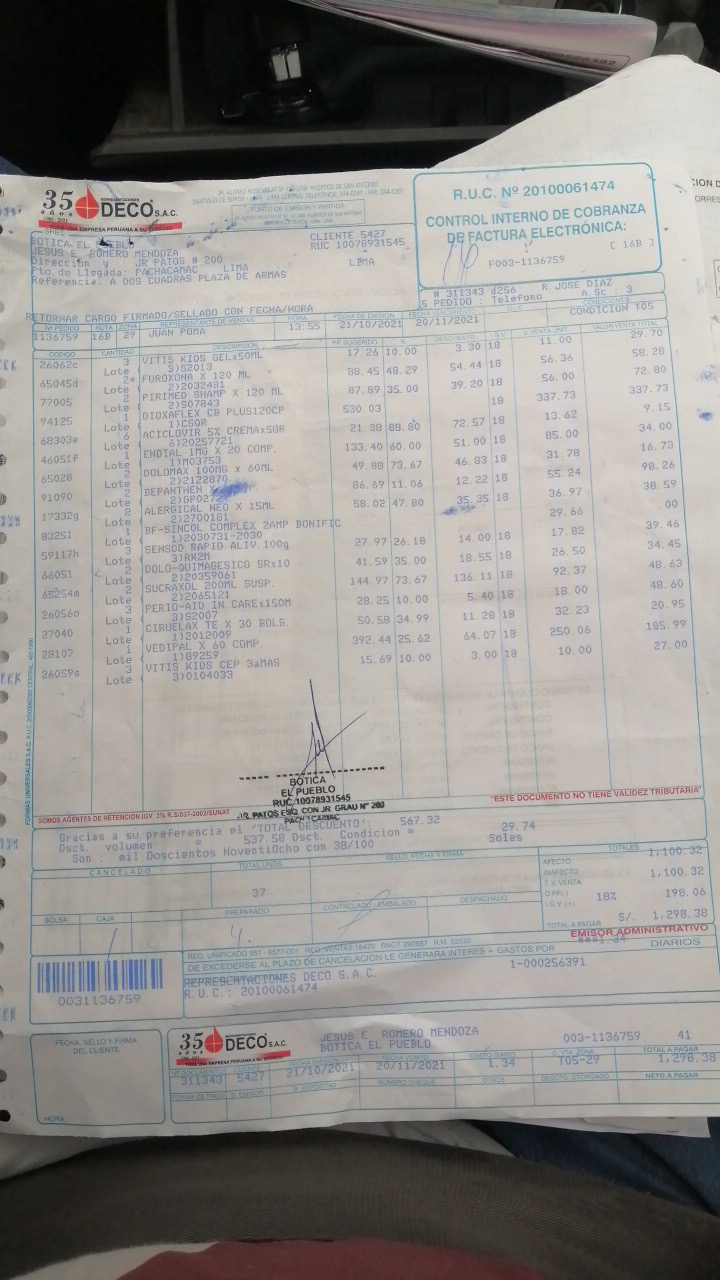 35 años
REPRESENTACIONES
DECO S.A.C.
TODA UNA EMPRESA PERUANA A SU SERVICIO
PUNTO DE EMISION Y PARTIDA
R.U.C. Nº 20100061474
CONTROL INTERNO DE COBRANZA
DE FACTURA ELECTRÓNICA:
[ 16B ]
F003-1136759
BOTICA EL PUEBLO CLIENTE 5427
JESUS E. ROMERO MENDOZA RUC 10078931545
Direccion y : JR PATOS # 200 LIMA
Pto. de Llegada: PACHACAMAC LIMA
Referencia: A DOS CUADRAS PLAZA DE ARMAS
# 311343 d256 R.JOSE DIAZ
PEDIDO : Telefono A.Sc : 3
RETORNAR CARGO FIRMADO/SELLADO CON FECHA/HORA
Nº PEDIDO RUTA ZONA REPRESENTANTE DE VENTAS HORA FECHA DE EMISION FECHA VENCIMIENTO O/C CONDICIONES
1136759 16B 29 JUAN POMA 13:55 21/10/2021 20/11/2021 CONDICION T05
CODIGO CANTIDAD DESCRIPCION PR.SUGERIDO % DESCUENTO I.G.V. V.VENTA UNIT. VALOR VENTA TOTAL
26062c 3 VITIS KIDS GELx50ML 17.26 10.00 3.30 18 11.00 29.70
Lote ( 3)S2013
65045d 2* FUROXONA X 120 ML 88.45 48.29 54.44 18 56.36 58.28
Lote ( 2)2032481
77005 2 PIRIMED SHAMP X 120 ML 87.89 35.00 39.20 18 56.00 72.80
Lote ( 2)S07843
94125 1 DIOXAFLEX CB PLUS120CP 530.03 18 337.73 337.73
Lote ( 1)CSQR
68303e 6 ACICLOVIR 5% CREMAx5GR 21.38 88.80 72.57 18 13.62 9.15
Lote ( 6)20257721
46051f 1 ENDIAL 1MG X 20 COMP. 133.40 60.00 51.00 18 85.00 34.00
Lote ( 1)M03753
65028 2 DOLOMAX 100MG x 60ML 49.88 73.67 46.83 18 31.78 16.73
Lote ( 2)2122870
91090 2 BEPANTHEN X 86.69 11.06 12.22 18 55.24 98.26
Lote ( 2)GP027
17332g 2 ALERGICAL NEO X 15ML 58.02 47.80 35.35 18 36.97 38.59
Lote ( 2)2700181
83251 1 BF-SINCOL COMPLEX 2AMP BONIFIC 29.66 .00
Lote ( 1)2030731-2030
59117h 3 SENSOD.RAPID.ALIV.100g 27.97 26.18 14.00 18 17.82 39.46
Lote ( 3)RK2M
66051 2 DOLO-QUIMAGESICO SRx10 41.59 35.00 18.55 18 26.50 34.45
Lote ( 2)20359061
65254m 2 SUCRAXOL 200ML SUSP. 144.97 73.67 136.11 18 92.37 48.63
Lote ( 2)2065121
26056o 3 PERIO-AID IN.CAREx150M 28.25 10.00 5.40 18 18.00 48.60
Lote ( 3)S2007
27040 1 CIRUELAX TE X 30 BOLS. 50.58 34.99 11.28 18 32.23 20.95
Lote ( 1)2012009
28107 1 VEDIPAL X 60 COMP. 392.44 25.62 64.07 18 250.06 185.99
Lote ( 1)89259
26059s 3 VITIS KIDS CEP 3aMAS 15.69 10.00 3.00 18 10.00 27.00
Lote ( 3)0104033
BOTICA
EL PUEBLO
RUC 10078931545
JR. PATOS ESQ. CON JR GRAU Nº 200
PACHACAMAC
SOMOS AGENTES DE RETENCION IGV 3% R.S/037-2002/SUNAT
"ESTE DOCUMENTO NO TIENE VALIDEZ TRIBUTARIA"
Gracias a su preferencia el "TOTAL DESCUENTO": 567.32
Dsct. volumen = 537.58 Dsct. Condicion = 29.74
Son : mil Doscientos NoventiOcho con 38/100 Soles
CANCELADO TOTAL UNDS SELLO, FECHA Y FIRMA TOTALES
37
AFECTO 1,100.32
INAFECTO
T.V. VENTA 1,100.32
I.G.V. (+) 18% 198.06
TOTAL A PAGAR S/. 1,298.38
BOLSA CAJA PREPARADO CONTROLADO / EMBALADO DESPACHADO
EMISOR ADMINISTRATIVO
DE EXCEDERSE AL PLAZO DE CANCELACION LE GENERARA INTERES + GASTOS POR ***1.34 DIARIOS
REPRESENTACIONES DECO S.A.C. 1-000256391
R.U.C.: 20100061474
0031136759
FECHA, SELLO Y FIRMA
DEL CLIENTE
HORA:
35 años
REPRESENTACIONES
DECO S.A.C.
TODA UNA EMPRESA PERUANA A SU SERVICIO
JESUS E. ROMERO MENDOZA 003-1136759 41
BOTICA EL PUEBLO
Nº DOCUMENTO CLIENTE FECHA EMISION FECHA VENCTO GASTO DIARIO C. VTA. ZONA TOTAL A PAGAR
311343 5427 21/10/2021 20/11/2021 1.34 T05-29 1,298.38
FORMA DE PAGO B. EMISOR B. DEPOSITAR NUMERO CHEQUE OTROS DESCTO. OTORGADO NETO A PAGAR